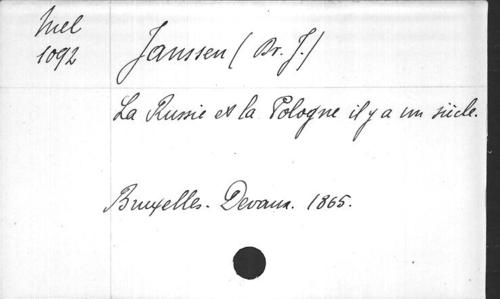 Mel
1092
Janssen (Br. J.)
La Russie et la Pologne il y a un siècle.
Bruxelles. Devaux. 1865.